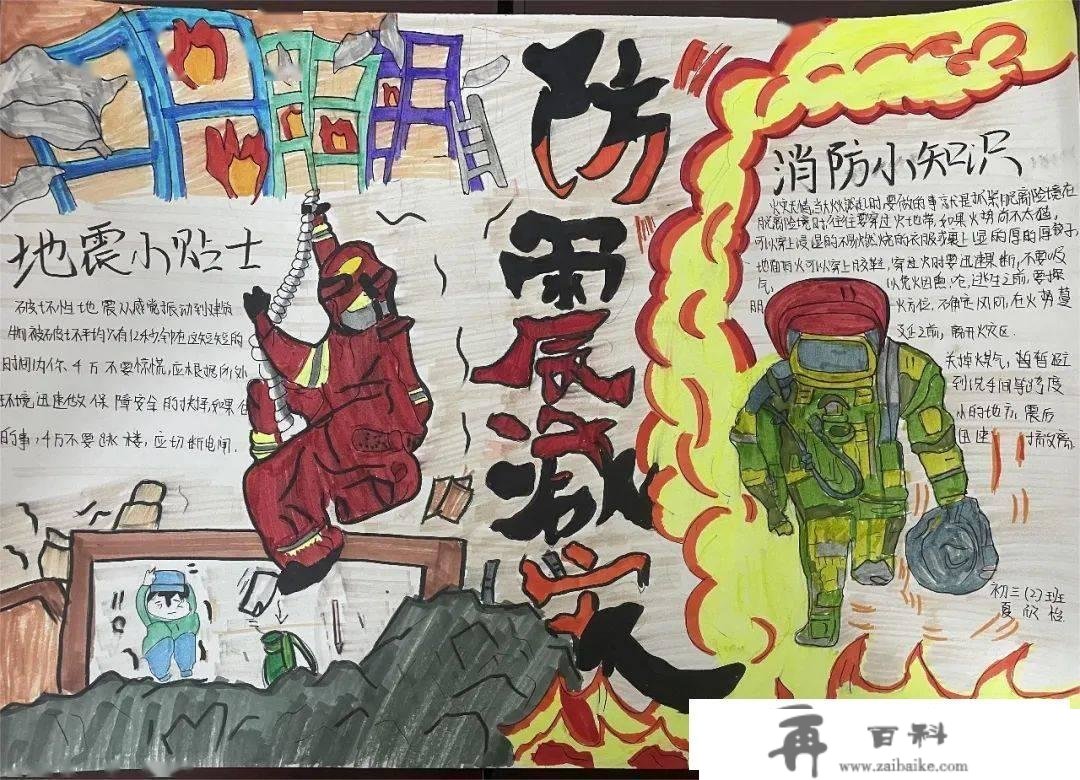 防震减灾
地震小贴士
破坏性地震从感觉振动到建筑
物被破坏平均只有12秒钟在这短短的
时间内你千万不要惊慌,应根据所处
环境迅速做保障安全的抉择如果住
的事,千万不要跳楼,应切断电闸.
消防小知识
火灾
时要做的事就是抓紧脱离险境在
脱离险境时往往要穿过火地带,如果火势尚不太猛,
可以穿上浸湿的不易燃烧的衣服或裹上湿的厚的
地面有火可以穿上胶鞋,穿过火时要迅速果断,不要吸
气,以免火因鱼呛,逃生之前,要探
明火方位,不确定风向,在火势蔓
延之前,离开火灾区.
关掉煤气,暂避
到洗手间等跨度
小的地方,震后
迅速撤离
初三(2)班
夏欣怡
再百科
www.zaibaike.com